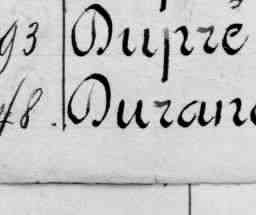 93 Dupré
48. Durand